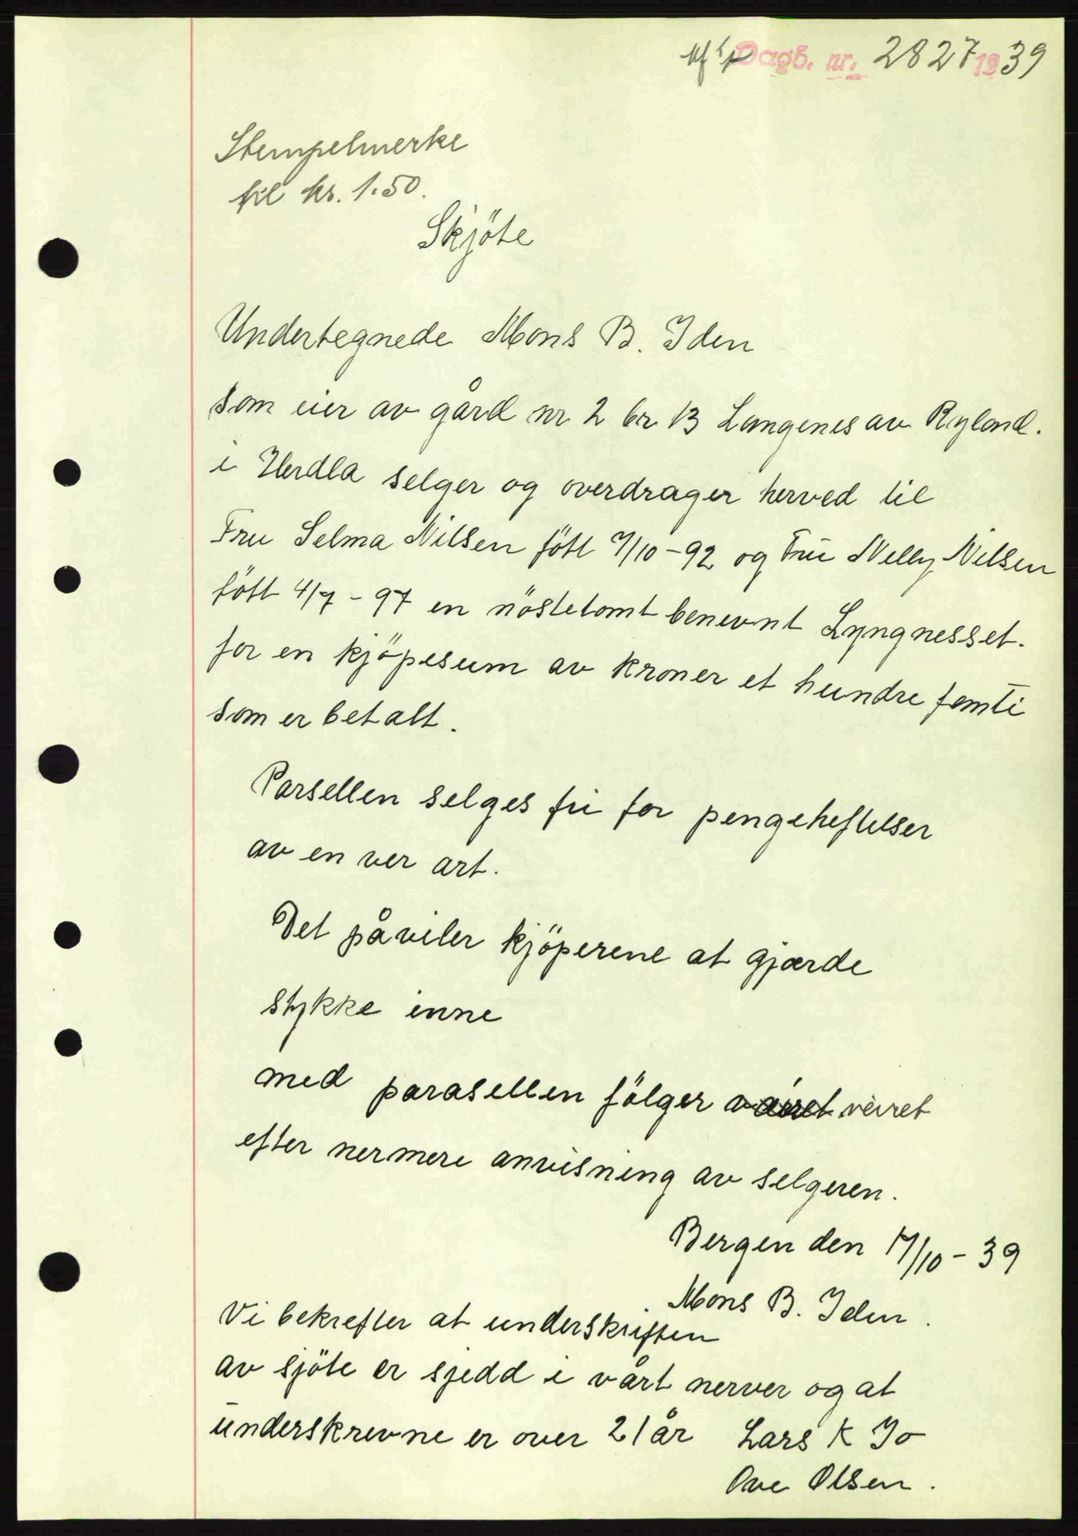 Dagb. nr. 2827 1939
Stempelmerke
til kr. 1.50.
Skjöte
Undertegnede Mons B. Iden
som eier av gård nr 2 br. 13 Langenes av Ryland.
i Herdla selger og overdrager herved til
Fru Selma Nilsen fött 7/10-92 og Fru Nelly Nilsen
fött 4/7-97 en nöstetomt benevnt Lyngnesset.
for en kjöpesum av kroner et hundre femti
som er betalt.
Parsellen selges fri for pengeheftelser
av en ver art.
Det påviler kjöperene at gjærde
stykke inne
med parasellen fölger veiret
efter nermere anvisning av selgeren.
Bergen den 17/10-39
Mons B. Iden.
Vi bekrefter at underskriften
av sjöte er sjedd i vårt nerver og at
underskrevne er over 21 år Lars K Jo
Ove Olsen.